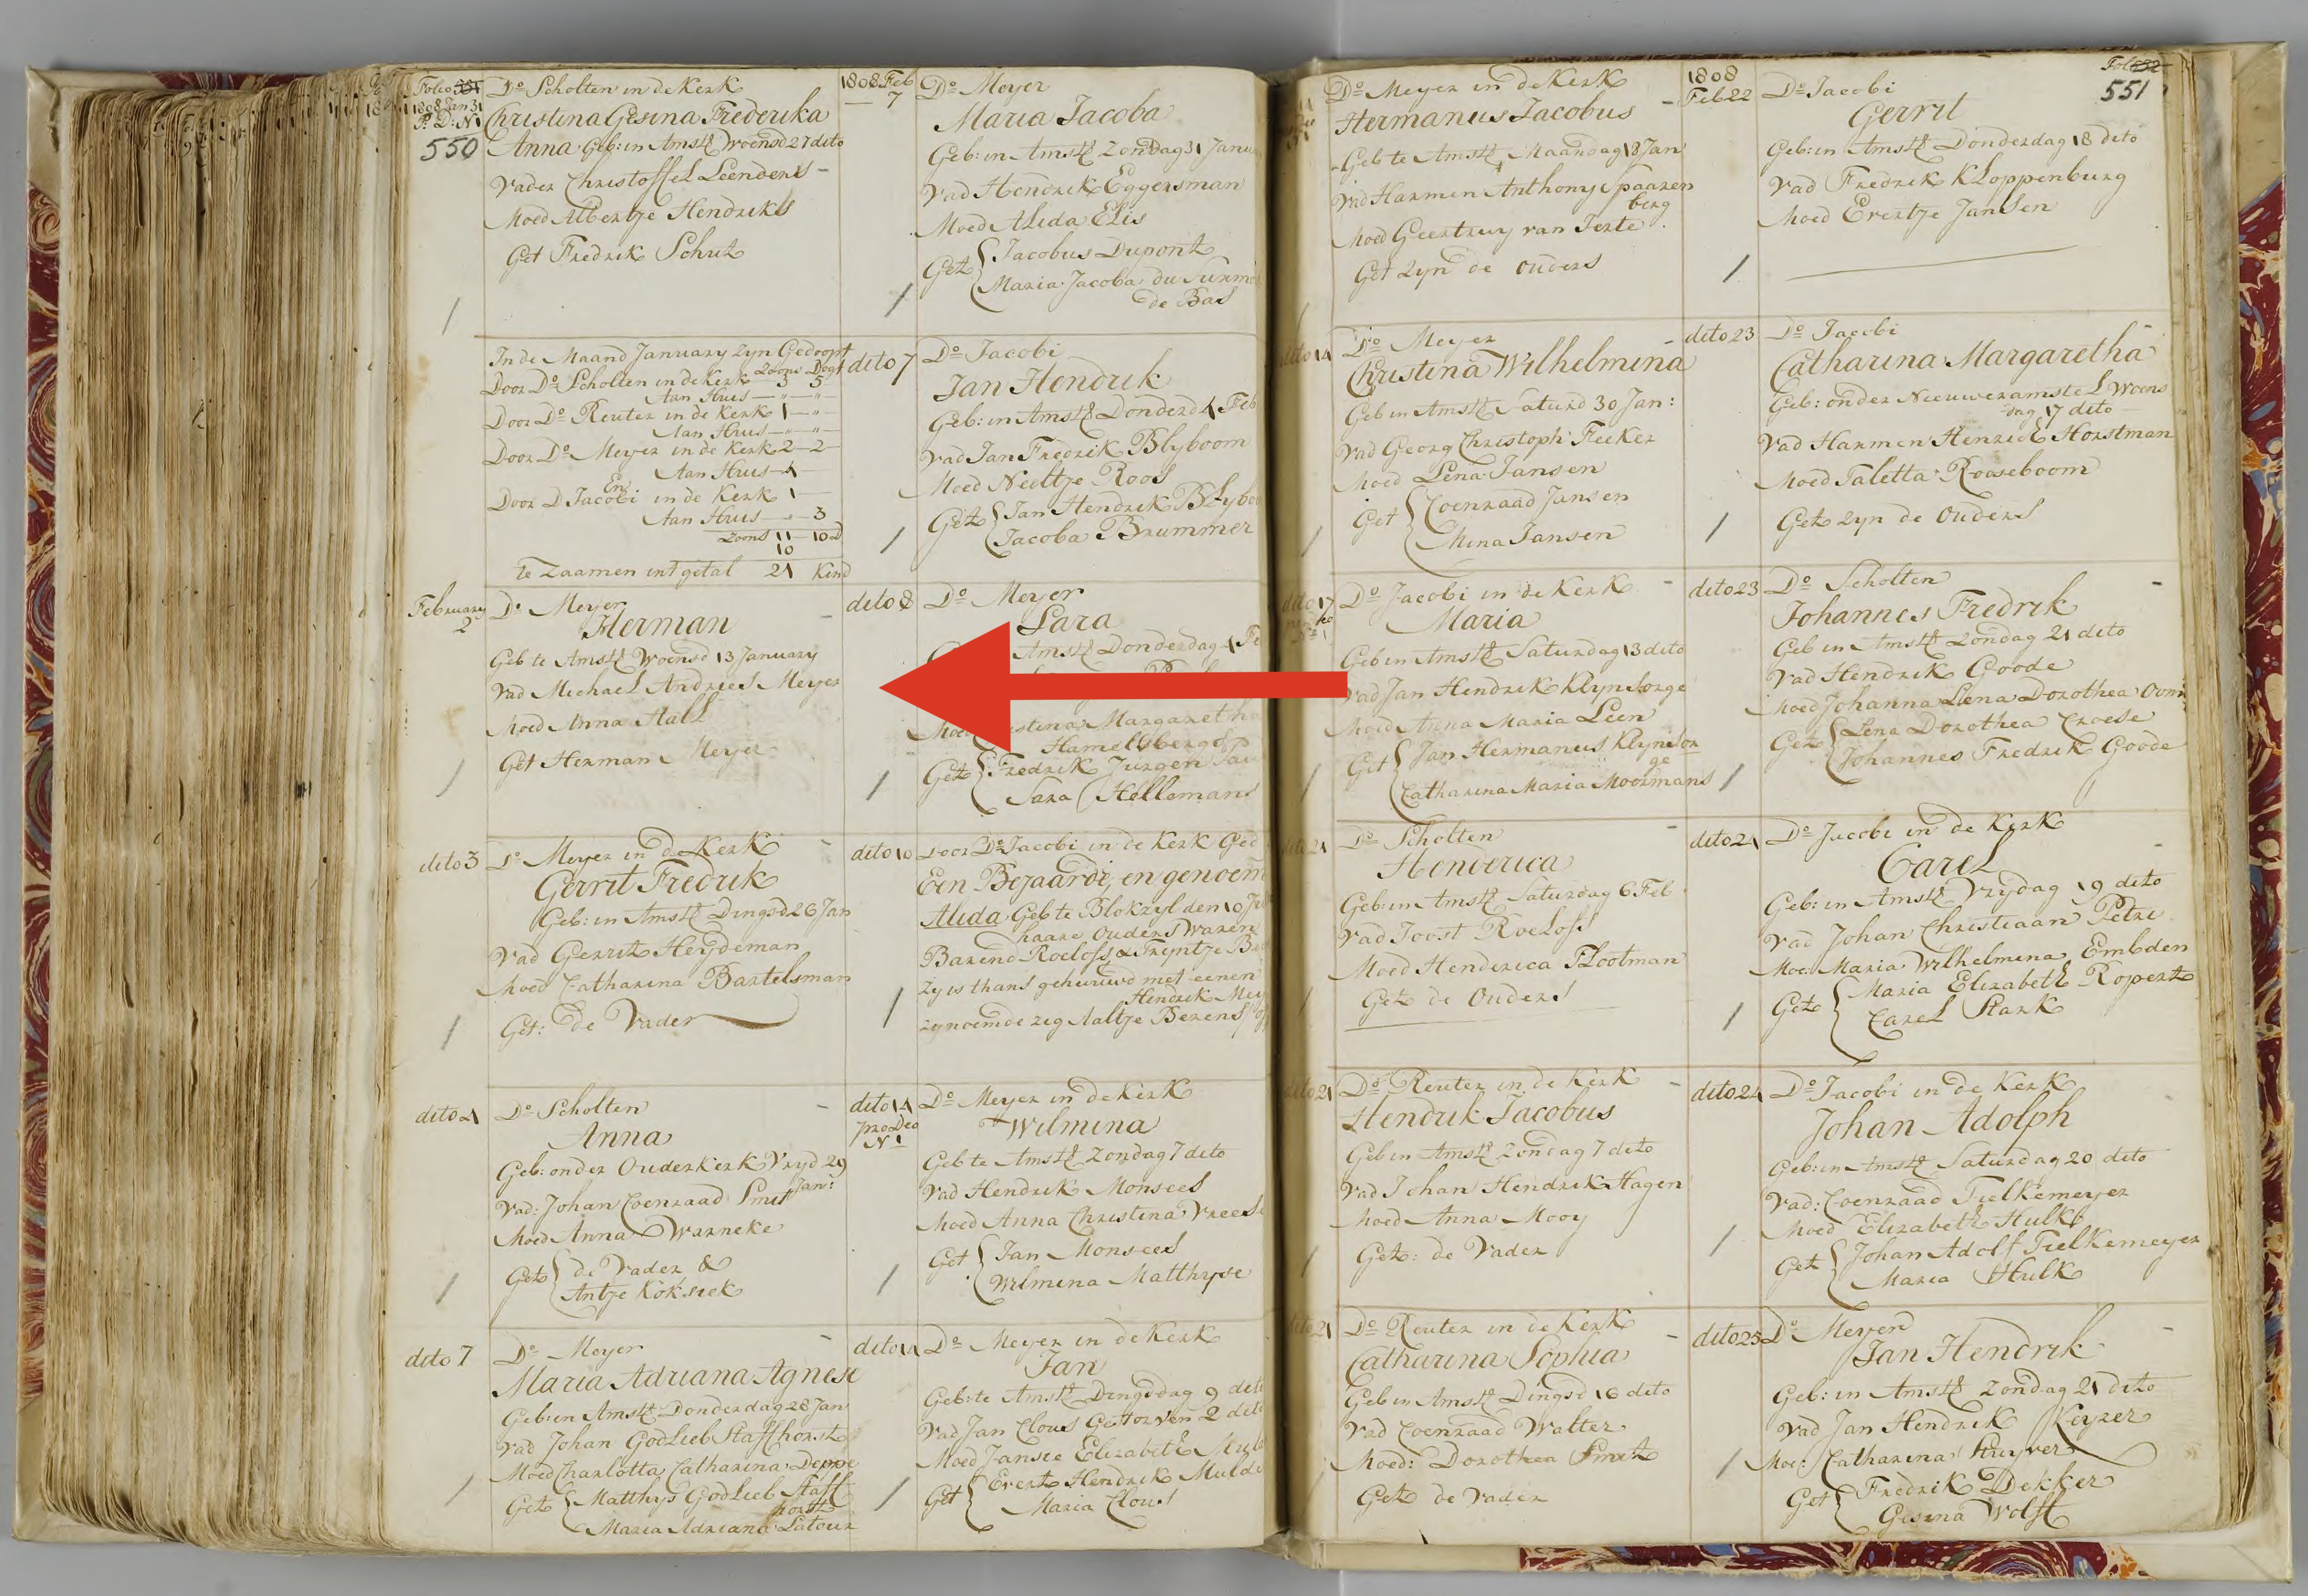 Folio 551
1808 Jan 31
P: D: N 1
550
Do Scholten in de Kerk
Christina Gesina Frederika
Anna Geb: in Amstr Woensd 27 dito
Vader Christoffel Leenders
Moed Albertje Hendriks
Get Fredrik Schut
In de Maand January zyn Gedoopt
Zoons Dogt
Door Do Scholten in de Kerk 3 5
Aan Huis
Door Do Reuter in de Kerk 1
Aan Huis
Door Do Meyer in de Kerk 2 - 2
Aan Huis 4
En
Door D Jacobi in de Kerk 1
Aan Huis 3
Zoons 11 10 D
10
te Zaamen int getal 21 Kind
February
2
Do Meyer
Herman
Geb te Amstr Woensd 13 January
Vad Michael Andries Meyer
Moed Anna Hall
Get Herman Meyer
dito 3
Do Meyer in de Kerk
Gerrit Fredrik
Geb: in Amstr Dingsd 26 Jan
Vad Gerrit Heydeman
Moed Catharina Bartelsman
Get: de Vader
dito 4
Do Scholten
Anna
Geb: onder Ouderkerk Vryd 29
Jan:
Vad: Johan Coenraad Smit
Moed Anna Warneke
Get de Vader &
Antje Koksiek
dito 7
Do Meyer
Maria Adriana Agnise
Geb: in Amstr Donderdag 28 Jan
Vad Johan Godlieb Staffhorst
Moed Charlotta Catharina Deppe
Get Matthys Godlieb Staff
horst
Maria Adriana Latour
1808 Feb
7
Do Meyer
Maria Jacoba
Geb: in Amstr Zondag 31 Janu
Vad Hendrik Eggersman
Moed Alida Elis
Get Jacobus Dupont
Maria Jacoba du
de Bas
dito 7
Do Jacobi
Jan Hendrik
Geb: in Amstr Donderd 4 Feb
Vad Jan Fredrik Blyboom
Moed Neeltje Roos
Get Jan Hendrik Blyboo
Jacoba Brummer
dito 8
Do Meyer
Sara
Amstr Donderdag 4 Fe
Moed stina Margaretha
Hamelsberg
Get Fredrik Jurgen
Sara Hellemans
dito 10
Door Do Jacobi in de Kerk Ged
Een Bejaarde, en genoem
Alida Geb te Blokzyl den 10
haare Ouders Waren
Barend Roelofs, & Tryntje
Zy is thans gehuuwd met eenen
Hendrik Mey
zy noemde zeg Aaltje Berens
dito 14
pro Deo
N 1
Do Meyer in de Kerk
Wilmina
Geb te Amstr Zondag 7 dito
Vad Hendrik Monsees
Moed Anna Christina Vreese
Get Jan Monsees
Wilmina Matthyse
dito 14
Do Meyer in de Kerk
Jan
Geb: te Amstr Dingsdag 9 dit
Vad Jan Clous Gestorven 2 dit
Moed Jansie Elizabeth Muld
Get Evert Hendrik Mulde
Maria Clous
Do Meyer in de Kerk
Hermanus Jacobus
Geb te Amstr Maandag 18 Jan
Vad Harmen Anthony Spaaren
berg
Moed Geertruy van Jerte
Get zyn de ouders
dito 14
Do Meyer
Christina Wilhelmina
Geb in Amstr Saturd 30 Jan:
Vad Georg Christoph Fecker
Moed Lena Jansen
Get Coenraad Jansen
Mina Jansen
dito 17
Do Jacobi in de Kerk
Maria
Geb in Amstr Saturdag 13 dito
Vad Jan Hendrik Klynsorge
Moed Anna Maria Leen
Get Jan Hermanus Klynsor
ge
Catharina Maria Moormans
dito 21
Do Scholten
Henderica
Geb: in Amstr Saturdag 6 Feb
Vad Joost Roelofs
Moed Henderica Flootman
Get de Ouders
dito 21
Do Reuter in de Kerk
Hendrik Jacobus
Geb in Amstr Zondag 7 dito
Vad Johan Hendrik Hagen
Moed Anna Mooy
Get: de Vader
dito 21
Do Reuter in de Kerk
Catharina Sophia
Geb in Amstr Dingsd 16 dito
Vad Coenraad Walter
Moed: Dorothea Smit
Get de Vader
1808
Feb 22
Folio 552
551
Do Jacobi
Gerrit
Geb: in Amstr Donderdag 18 dito
Vad Fredrik Kloppenburg
Moed Evertje Jansen
dito 23
Do Jacobi
Catharina Margaretha
Geb: onder Nieuweramstel Woens
dag 17 dito
Vad Harmen Henrich Horstman
Moed Taletta Rooseboom
Get zyn de Ouders
dito 23
Do Scholten
Johannes Fredrik
Geb in Amstr Zondag 21 dito
Vad Hendrik Goode
Moed Johanna Lena Dorothea
Get Lena Dorothea Croese
Johannes Fredrik Goode
dito 24
Do Jacobi in de Kerk
Carel
Geb: in Amstr Vrydag 19 dito
Vad Johan Christiaan Petri
Moe: Maria Wilhelmina Embden
Get Maria Elizabeth Ropert
Carel Stark
dito 24
Do Jacobi in de Kerk
Johan Adolph
Geb: in Amstr Saturdag 20 dito
Vad: Coenraad Tielkemeyer
Moed Elizabeth Hulk
Get Johan Adolf Tielkemeyer
Maria Hulk
dito 25
Do Meyer
Jan Hendrik
Geb: in Amstr Zondag 21 dito
Vad Jan Hendrik Keyzer
Moe: Catharina Struyver
Get Fredrik Dekker
Gesina Wolff